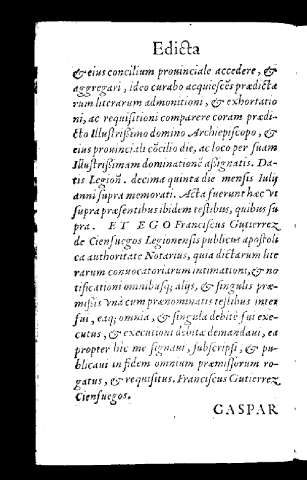 Edicta
& eius concilium prouinciale accedere, &
aggregari, ideo curabo acquiescẽs prædictа
rum literarum admonitioni, & exhortatio
ni, ac requisitioni comparere coram prædi-
cto Illustrissimo domino Archiepiscopo, &
eius prouinciali cõcilio die, ac loco per suam
Illustrissimam dominationẽ assignatis. Da-
tis Legioñ. decima quinta die mensis Iulij
anni supra memorati. Acta fuerunt hæc vt
supra præsentibus ibidem testibus, quibus su
pra. ET EGO Franciscus Gutierrez
de Cienfuegos Legionensis publicus apostoli
ca authoritate Notarius, quia dictarum lite
rarum conuocatoriarum intimationi, & no
tificationi omnibusq; alijs, & singulis præ-
missis vnà cum prænominatis testibus inter
fui, eaq; omnia, & singula debitè fui exe-
cutus, & executioni debitæ demandaui, ea
propter hic me signaui, subscripsi, & pu-
blicaui in fidem omnium præmissorum ro-
gatus, & requisitus. Franciscus Gutierrez
Cienfuegos.
GASPAR